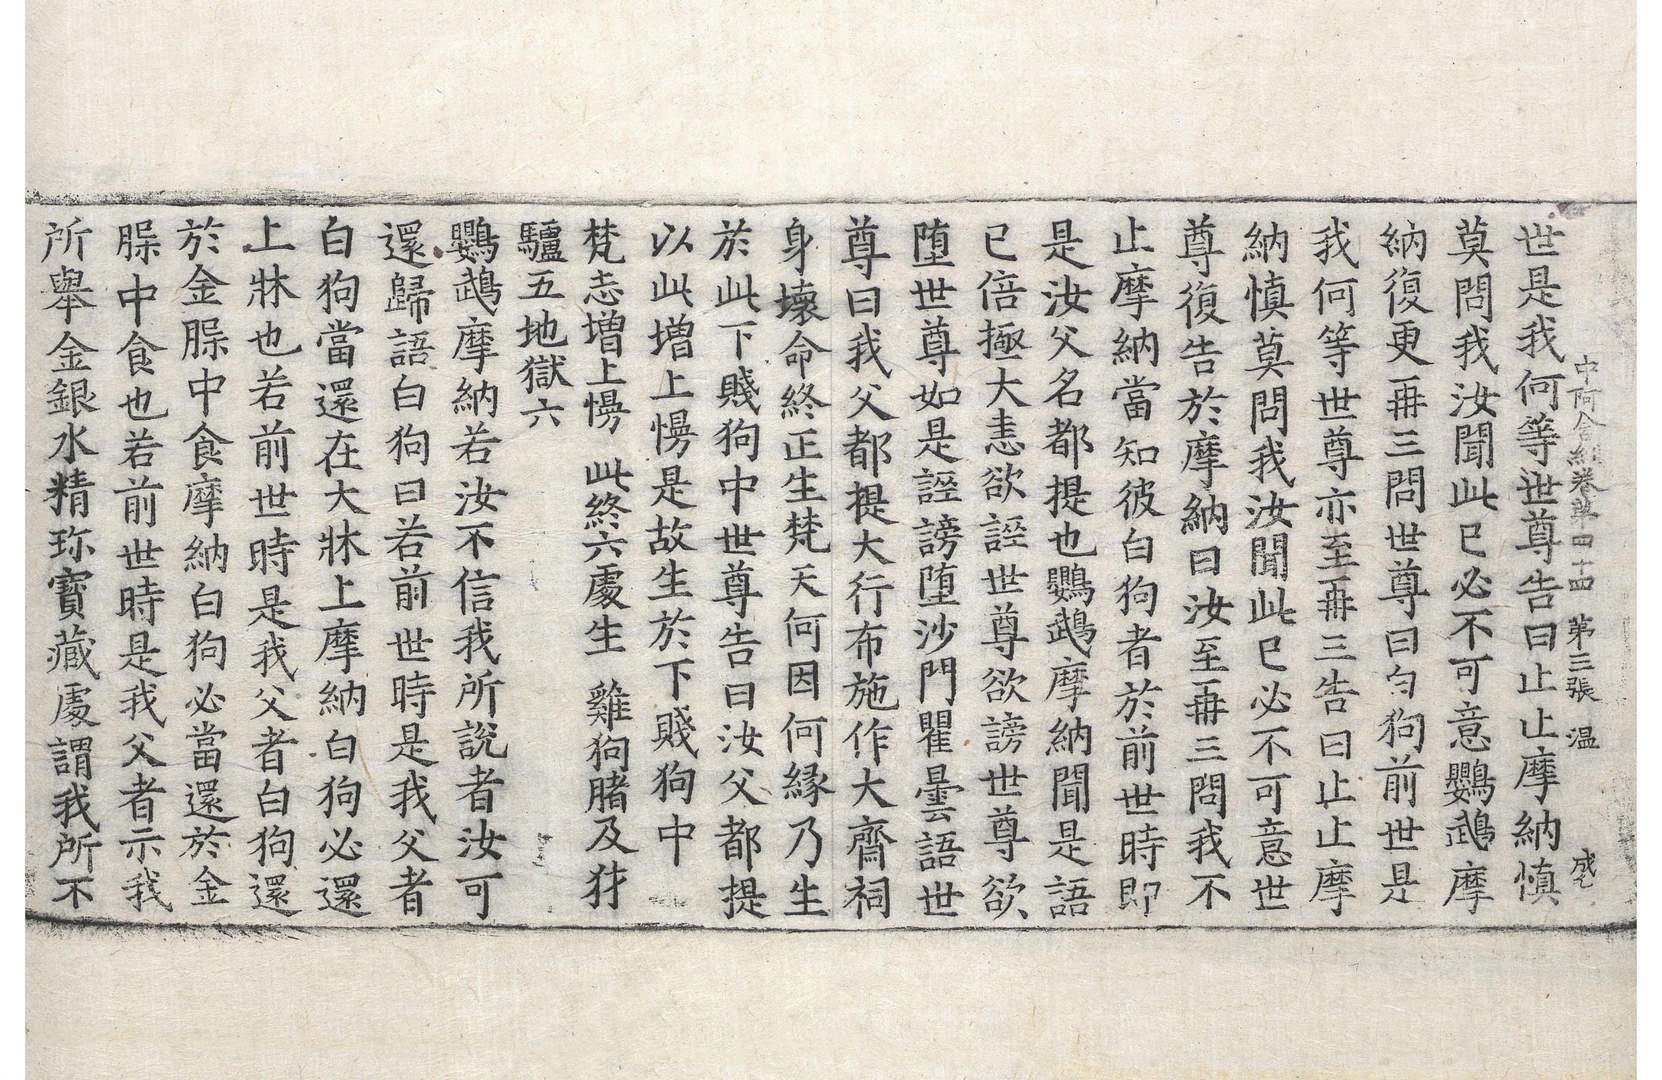 中阿含經卷第四十四 第三張 温
世是我何等世尊告曰止止摩納慎
莫問我汝聞此已必不可意鸚鵡摩
納復更再三問世尊曰白狗前世是
我何等世尊亦至再三告曰止止摩
納慎莫問我汝聞此已必不可意世
尊復告於摩納曰汝至再三問我不
止摩納當知彼白狗者於前世時即
是汝父名都提也鸚鵡摩納聞是語
已倍極大恚欲誣世尊欲謗世尊欲
墮世尊如是誣謗墮沙門瞿曇語世
尊曰我父都提大行布施作大齋祠
身壞命終正生梵天何因何緣乃生
於此下賤狗中世尊告曰汝父都提
以此增上慢是故生於下賤狗中
梵志增上慢 此終六處生 雞狗豬及犲
驢五地獄六
鸚鵡摩納若汝不信我所說者汝可
還歸語白狗曰若前世時是我父者
白狗當還在大牀上摩納白狗必還
上牀也若前世時是我父者白狗還
於金𣖔中食摩納白狗必當還於金
𣖔中食也若前世時是我父者示我
所舉金銀水精珎寶藏處謂我所不